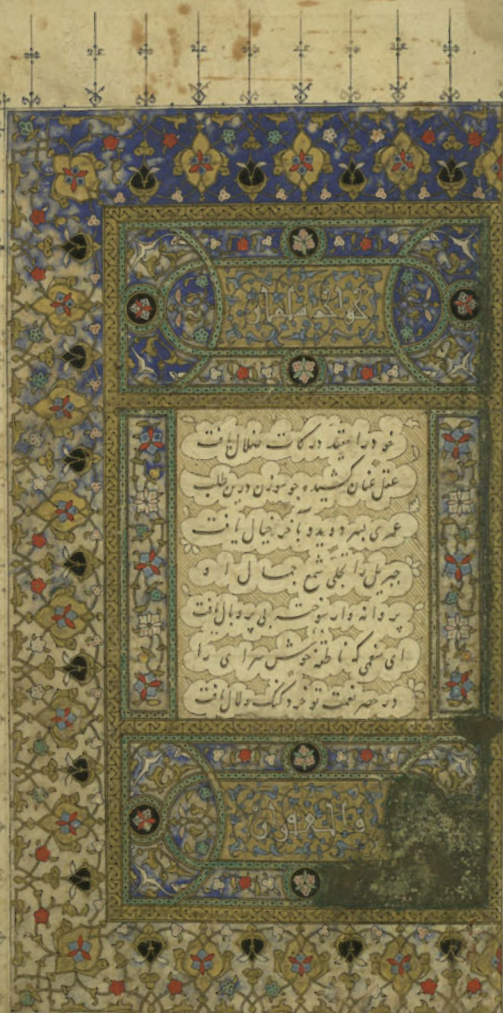 خود را مقید درکات ضلال یافت
عقل عنان کشیده چو سوزن درین طلب
عمری بسر دویده بآخر خیال یافت
جبریل را تجلی شمع جمال او
پروانه وار سوخته بی پر و بال یافت
ای منعمی که ناطقه خوش سرای را
در حصر نعمت تو خرد گنگ و لال یافت